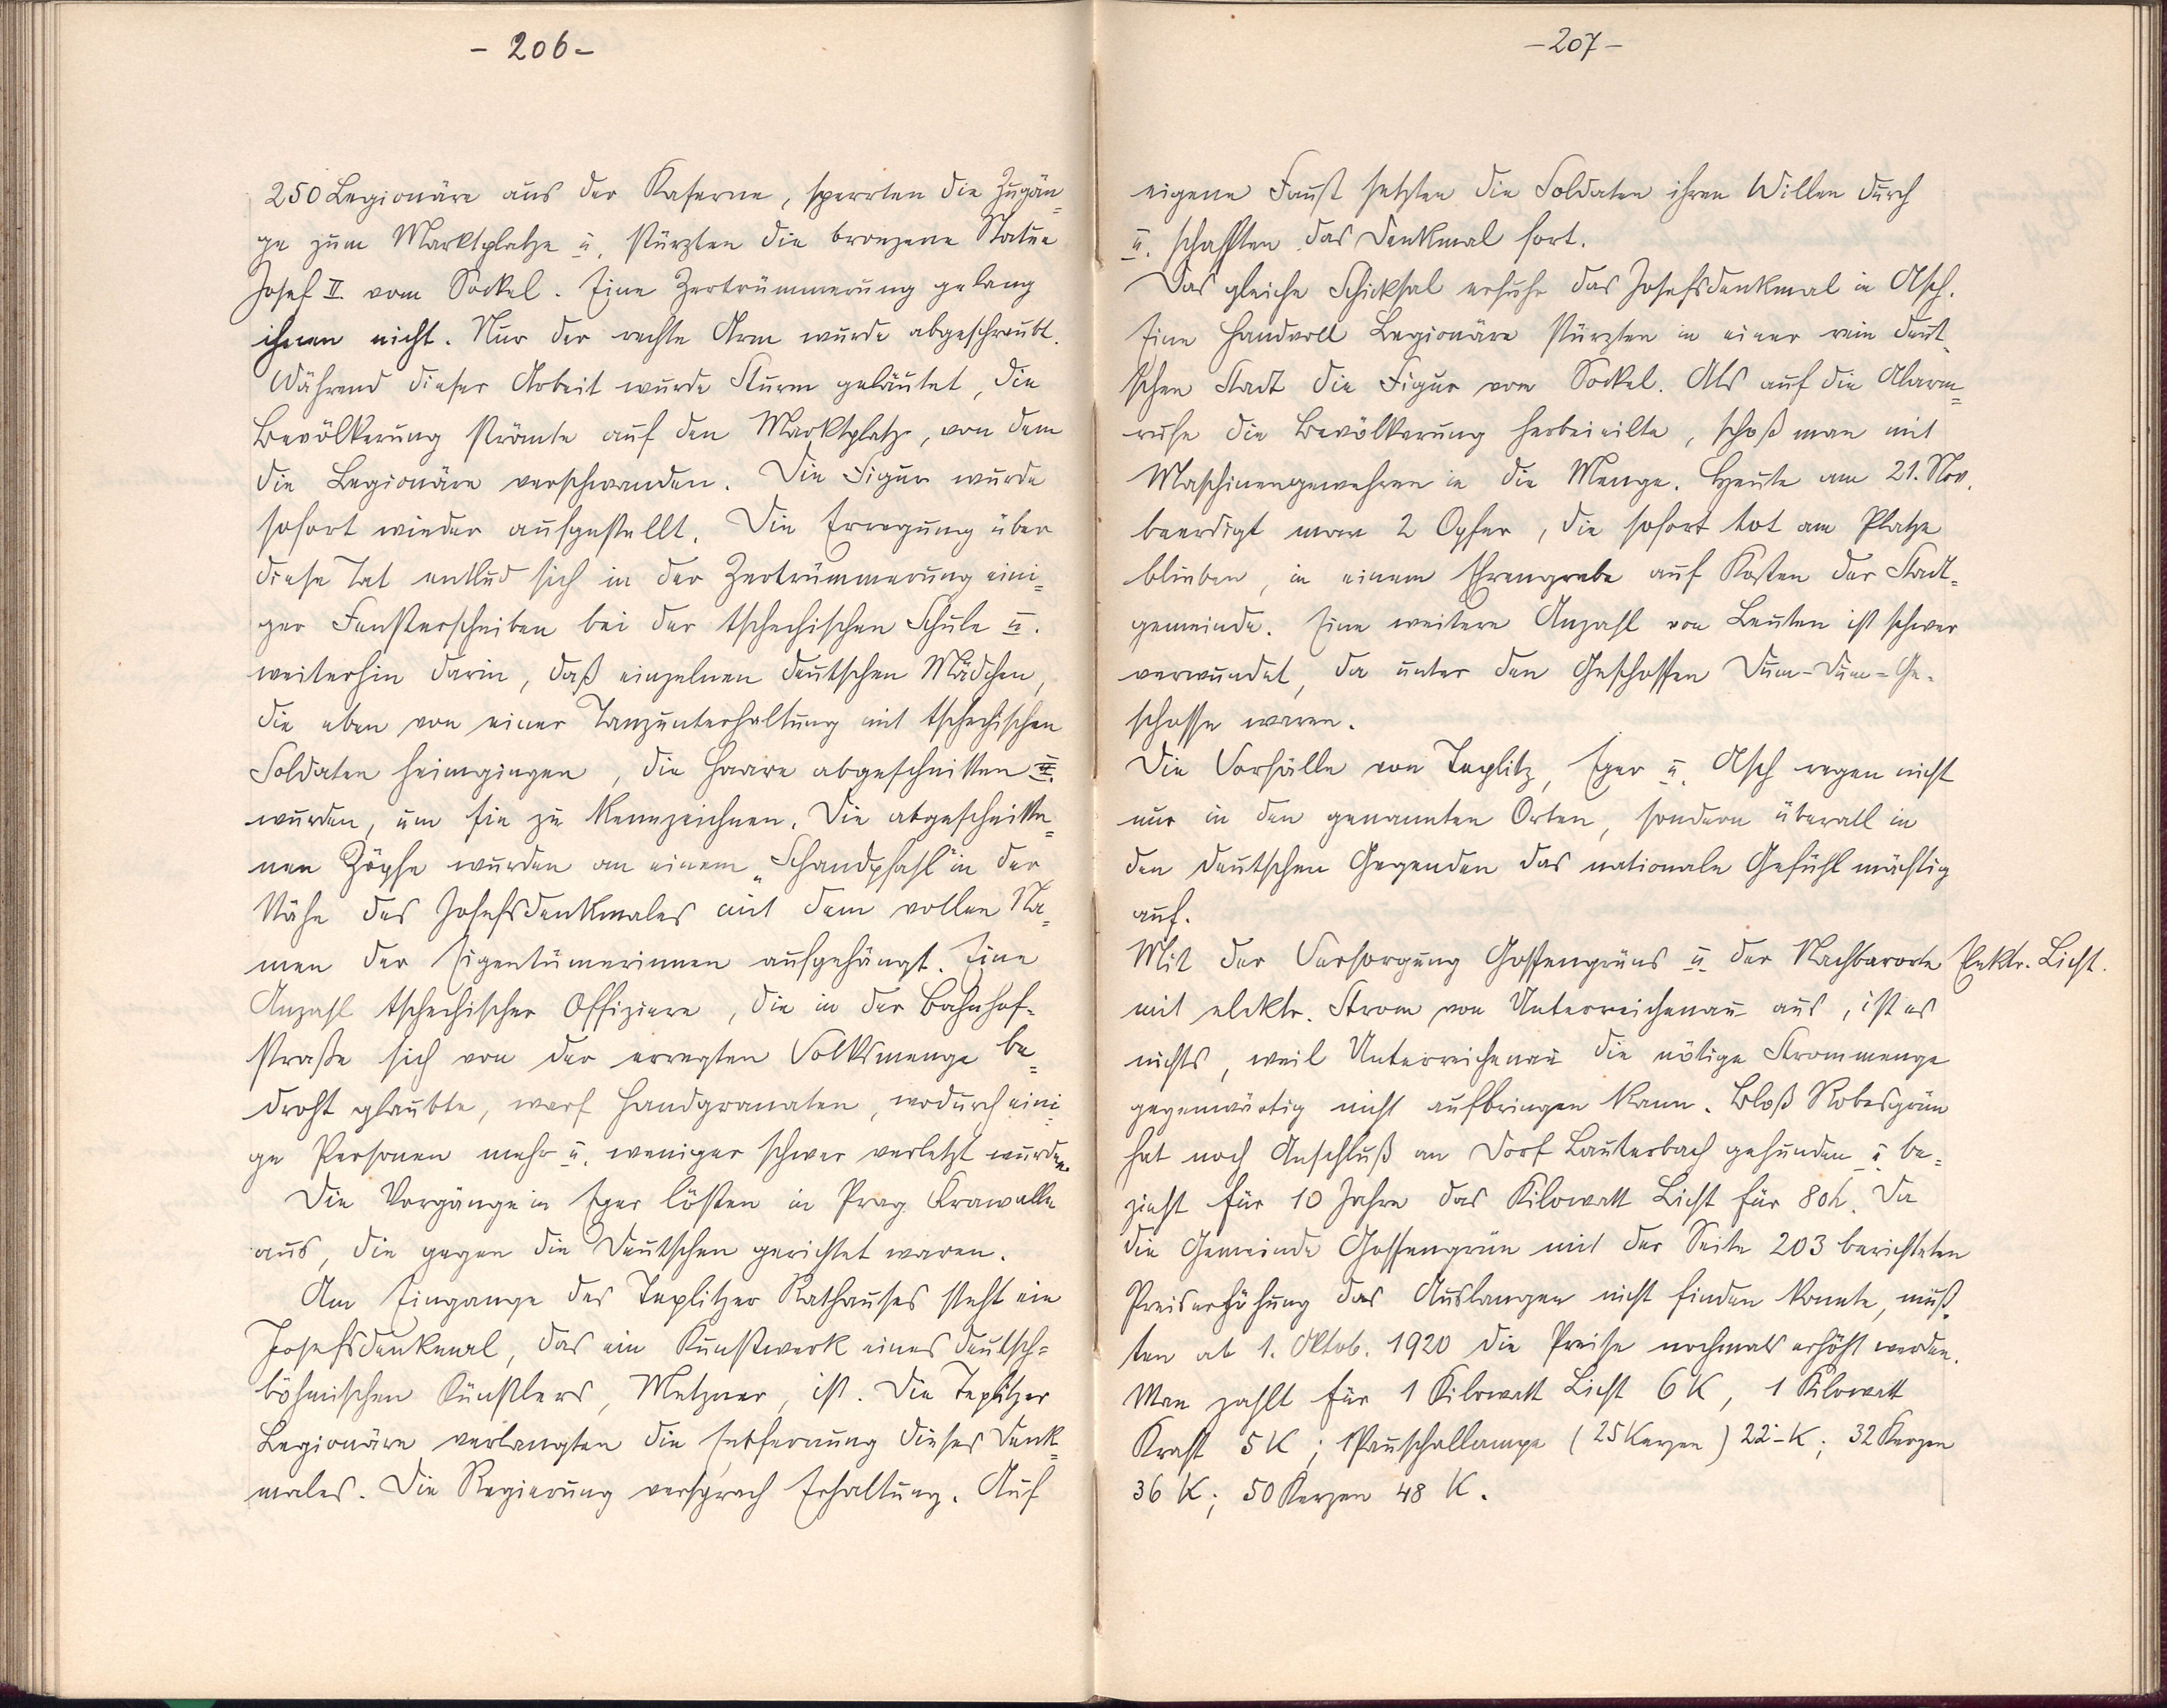 - 206 -
250 Legionäre aus der Kaserne, sperrten die Zugän=
ge zum Marktplatze u. stürzten die bronzene Statue
Josef II. vom Sockel. Eine Zertrümmerung gelang
ihnen nicht. Nur der rechte Arm wurde abgeschraubt.
Während dieser Arbeit wurde Sturm geläutet, die
Bevölkerung strömte auf den Marktplatz, von dem
die Legionäre verschwanden. Die Figur wurde
sofort wieder aufgestellt. Die Erregung über
diese Tat entlud sich in der Zertrümmerung eini=
ger Fensterscheiben bei der tschechischen Schule u.
weiterhin darin, daß einzelnen deutschen Mädchen,
die eben von einer Tanzunterhaltung mit tschechischen
Soldaten heimgingen, die Haare abgeschnitten
wurden, um sie zu kennzeichnen. Die abgeschnitte=
nen Zöpfe wurden an einem „Schandpfahl" in der
Nähe des Josefsdenkmales mit dem vollen Na=
men der Eigentümerinnen aufgehängt. Eine
Anzahl tschechischer Offiziere, die in der Bahnhof=
straße sich von der erregten Volksmenge be=
droht glaubte, warf Handgranaten, wodurch eini=
ge Personen mehr u. weniger schwer verletzt wurden.
Die Vorgänge in Eger lösten in Prag Krawalle
aus, die gegen die Deutschen gerichtet waren.
Am Eingange des Teplitzer Rathauses steht ein
Josefsdenkmal, das ein Kunstwerk eines deutsch=
böhmischen Künstlers, Metzner, ist. Die Teplitzer
Legionäre verlangten die Entfernung dieses Denk=
males. Die Regierung versprach Erhaltung. Auf
- 207 -
eigene Faust setzten die Soldaten ihren Willen durch
u. schafften das Denkmal fort.
Das gleiche Schicksal erfuhr das Josefsdenkmal in Asch.
Eine Handvoll Legionäre stürzten in einer rein deut=
schen Stadt die Figur vom Sockel. Als auf die Alarm=
rufe die Bevölkerung herbeieilte, schoß man mit
Maschinengewehren in die Menge. Heute am 21. Nov.
beerdigt man 2 Opfer, die sofort tot am Platze
blieben, in einem Ehrengrabe auf Kosten der Stadt=
gemeinde. Eine weitere Anzahl von Leuten ist schwer
verwundet, da unter den Geschossen Dum-Dum-Ge=
schosse waren.
Die Vorfälle von Teplitz, Eger u. Asch regen nicht
nur in den genannten Orten, sondern überall in
den deutschen Gegenden das nationale Gefühl mächtig
auf.
Mit der Versorgung Gossengrüns u. der Nachbarorte
Elektr. Licht.
mit elektr. Strom von Unterreichenau aus, ist es
nichts, weil Unterreichenau die nötige Strommenge
gegenwärtig nicht aufbringen kann. Bloß Robesgrün
hat noch Anschluß an Dorf Lauterbach gefunden u. be=
zieht für 10 Jahre das Kilowatt Licht für 80 h. Da
die Gemeinde Gossengrün mit der Seite 203 berichteten
Preiserhöhung das Auslangen nicht finden konnte, muß=
ten ab 1. Oktob. 1920 die Preise nochmals erhöht werden.
Man zahlt für 1 Kilowatt Licht 6 K, 1 Kilowatt
Kraft 5 K; 1 Pauschallampe (25 Kerzen) 22·- K; 32 Kerzen
36 K; 50 Kerzen 48 K.